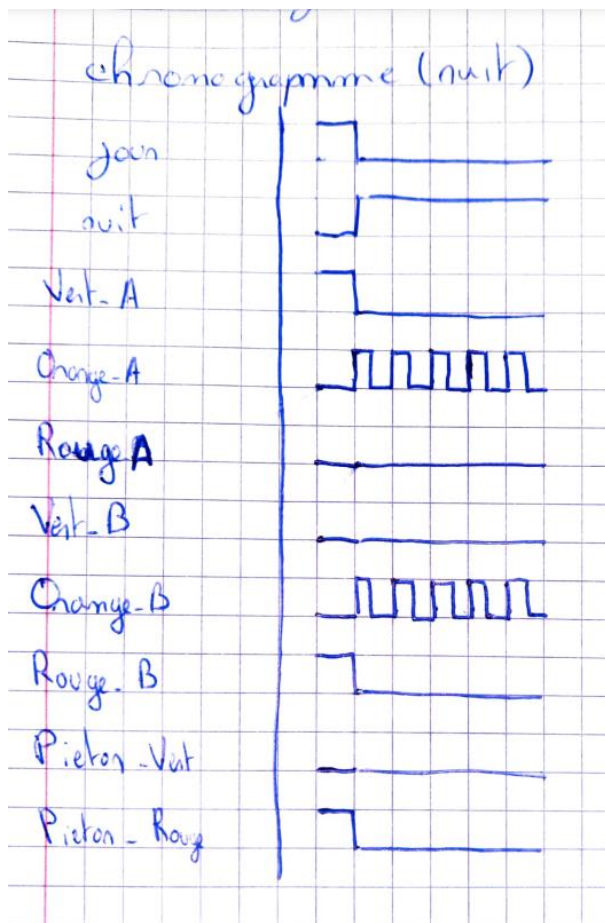 chronogramme (nuit)
jour
nuit
Vert_A
Orange_A
Rouge A
Vert_B
Orange_B
Rouge_B
Pieton_Vert
Pieton_Rouge